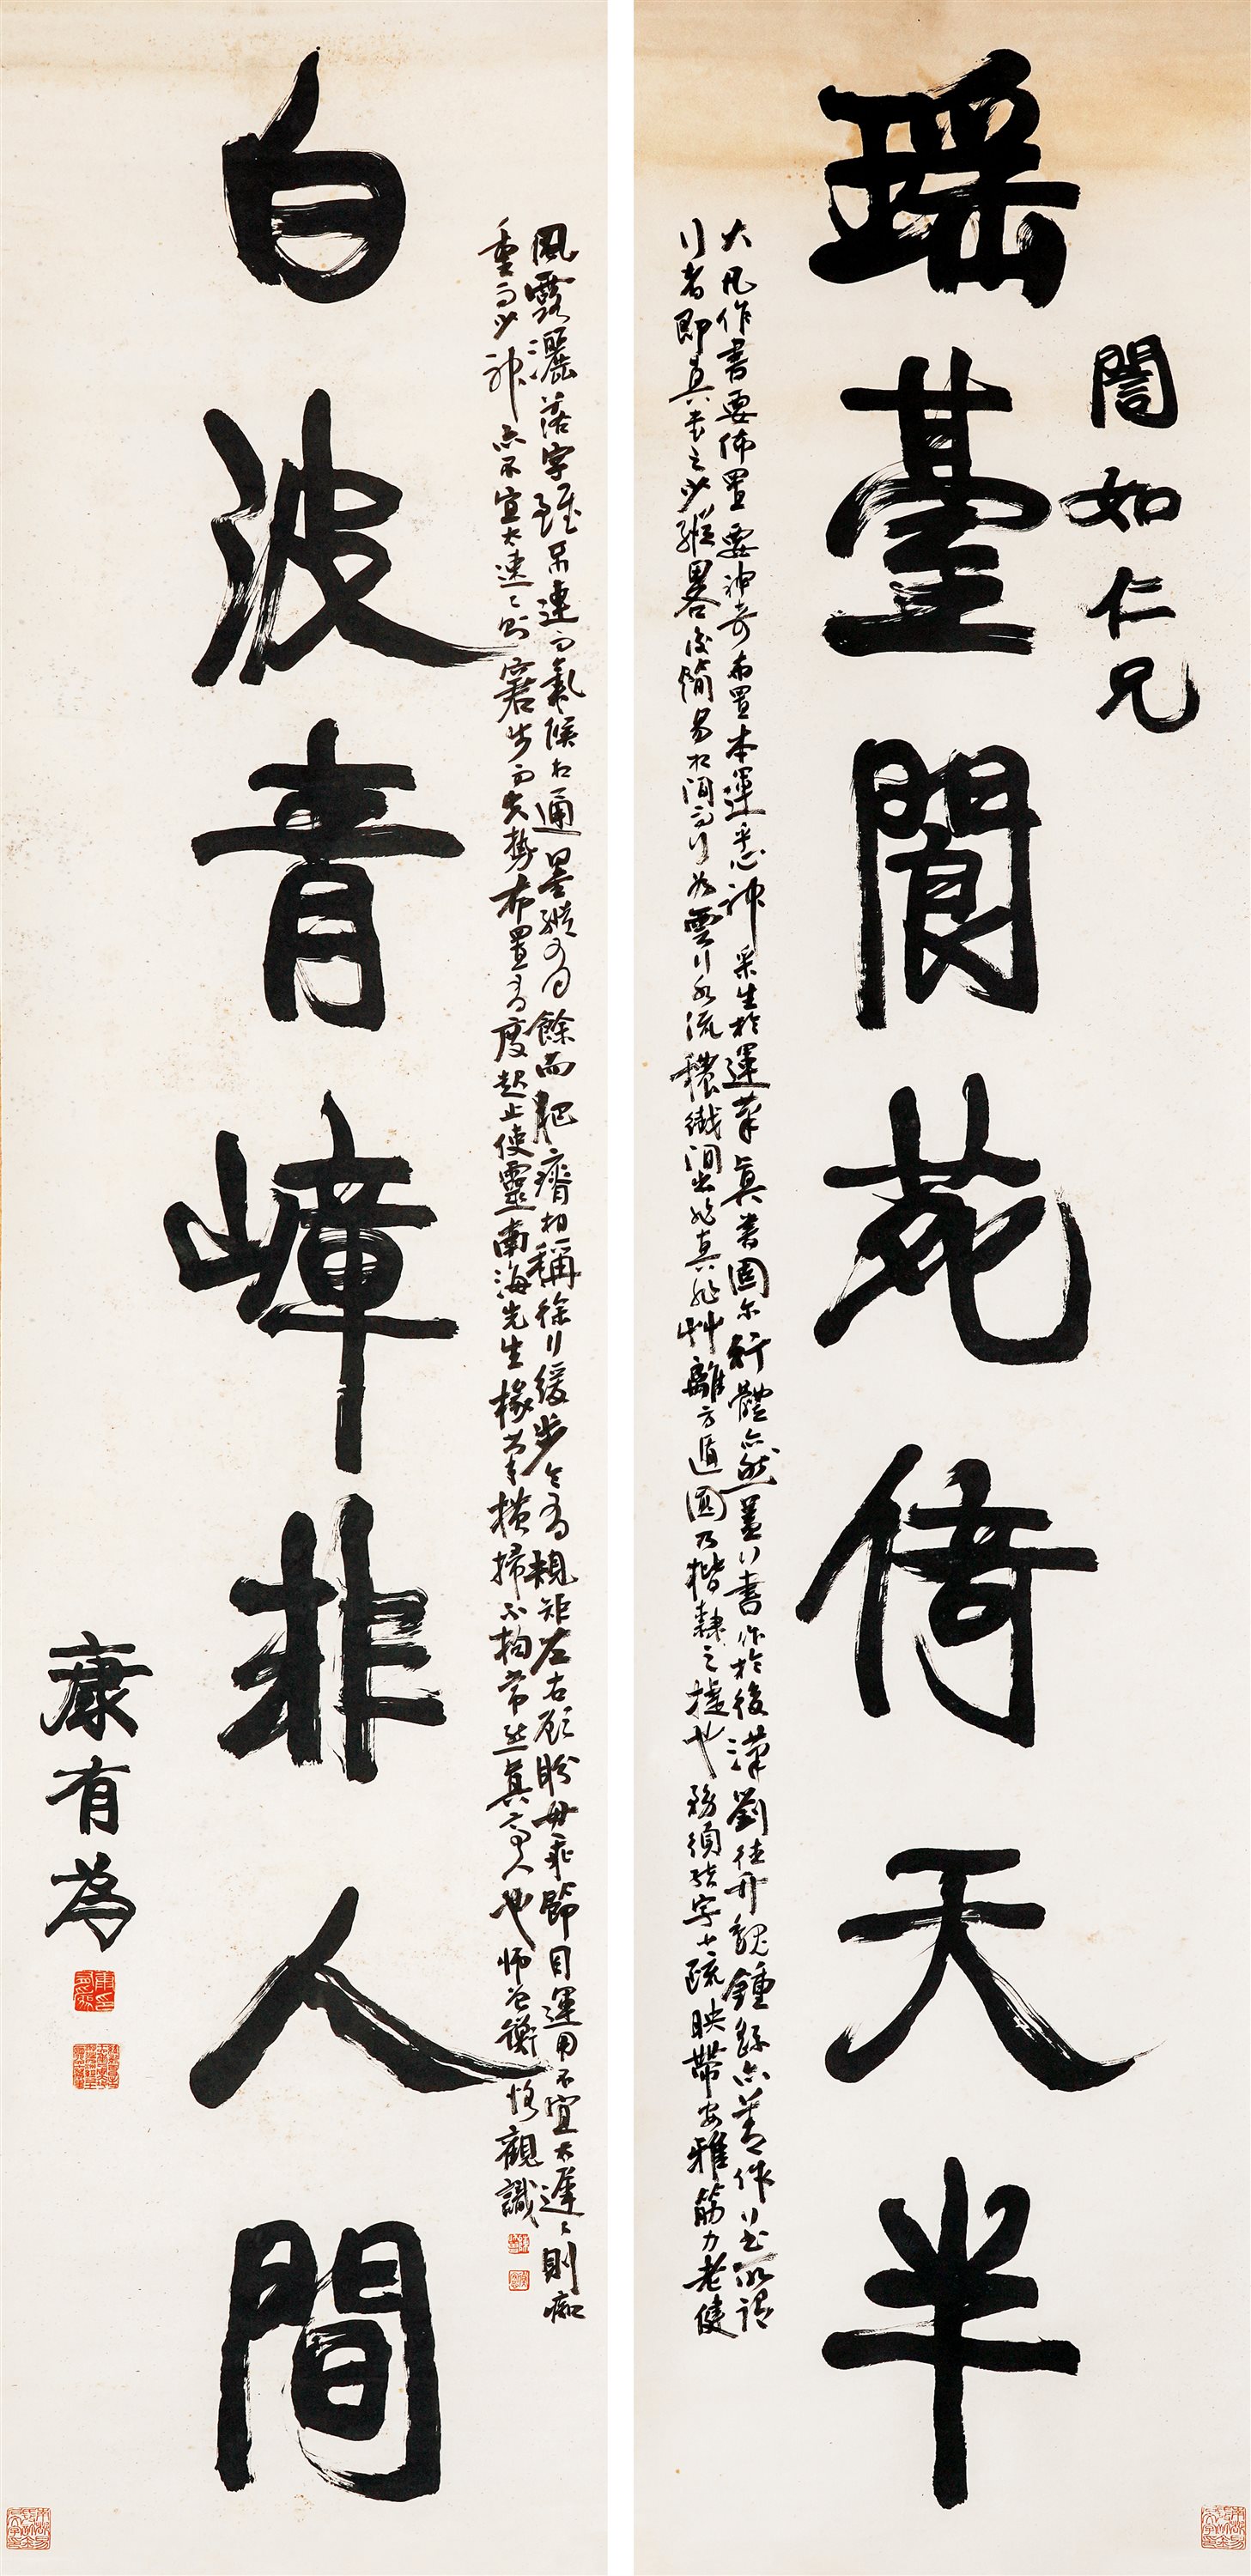 誾如仁兄
瑶臺閬苑倚天半
大凡作書要佈置要神奇布置本運乎心神采生於運筆真書固尔行體亦然蓋行書作於後漢劉德升魏鍾繇亦善作行書所謂
行者即真書之少縱畧後簡易相間而行如雲行水流穠纖間出非真非艸離方遁圓乃楷隸之捷也務須結字小疏映帶安雅筋力老健
風露灑落字雖不連而氣候相通墨縱有餘而肥瘠相稱徐行緩步令有規矩左右顧盼毋乖節目運用不宜太遲〻則癡
重而少神亦不宜太速〻則窘步而失勢布置有度起止使靈南海先生椽筆橫掃不拘常態真高人也師曾衡恪觀識
白波青嶂非人間
康有為